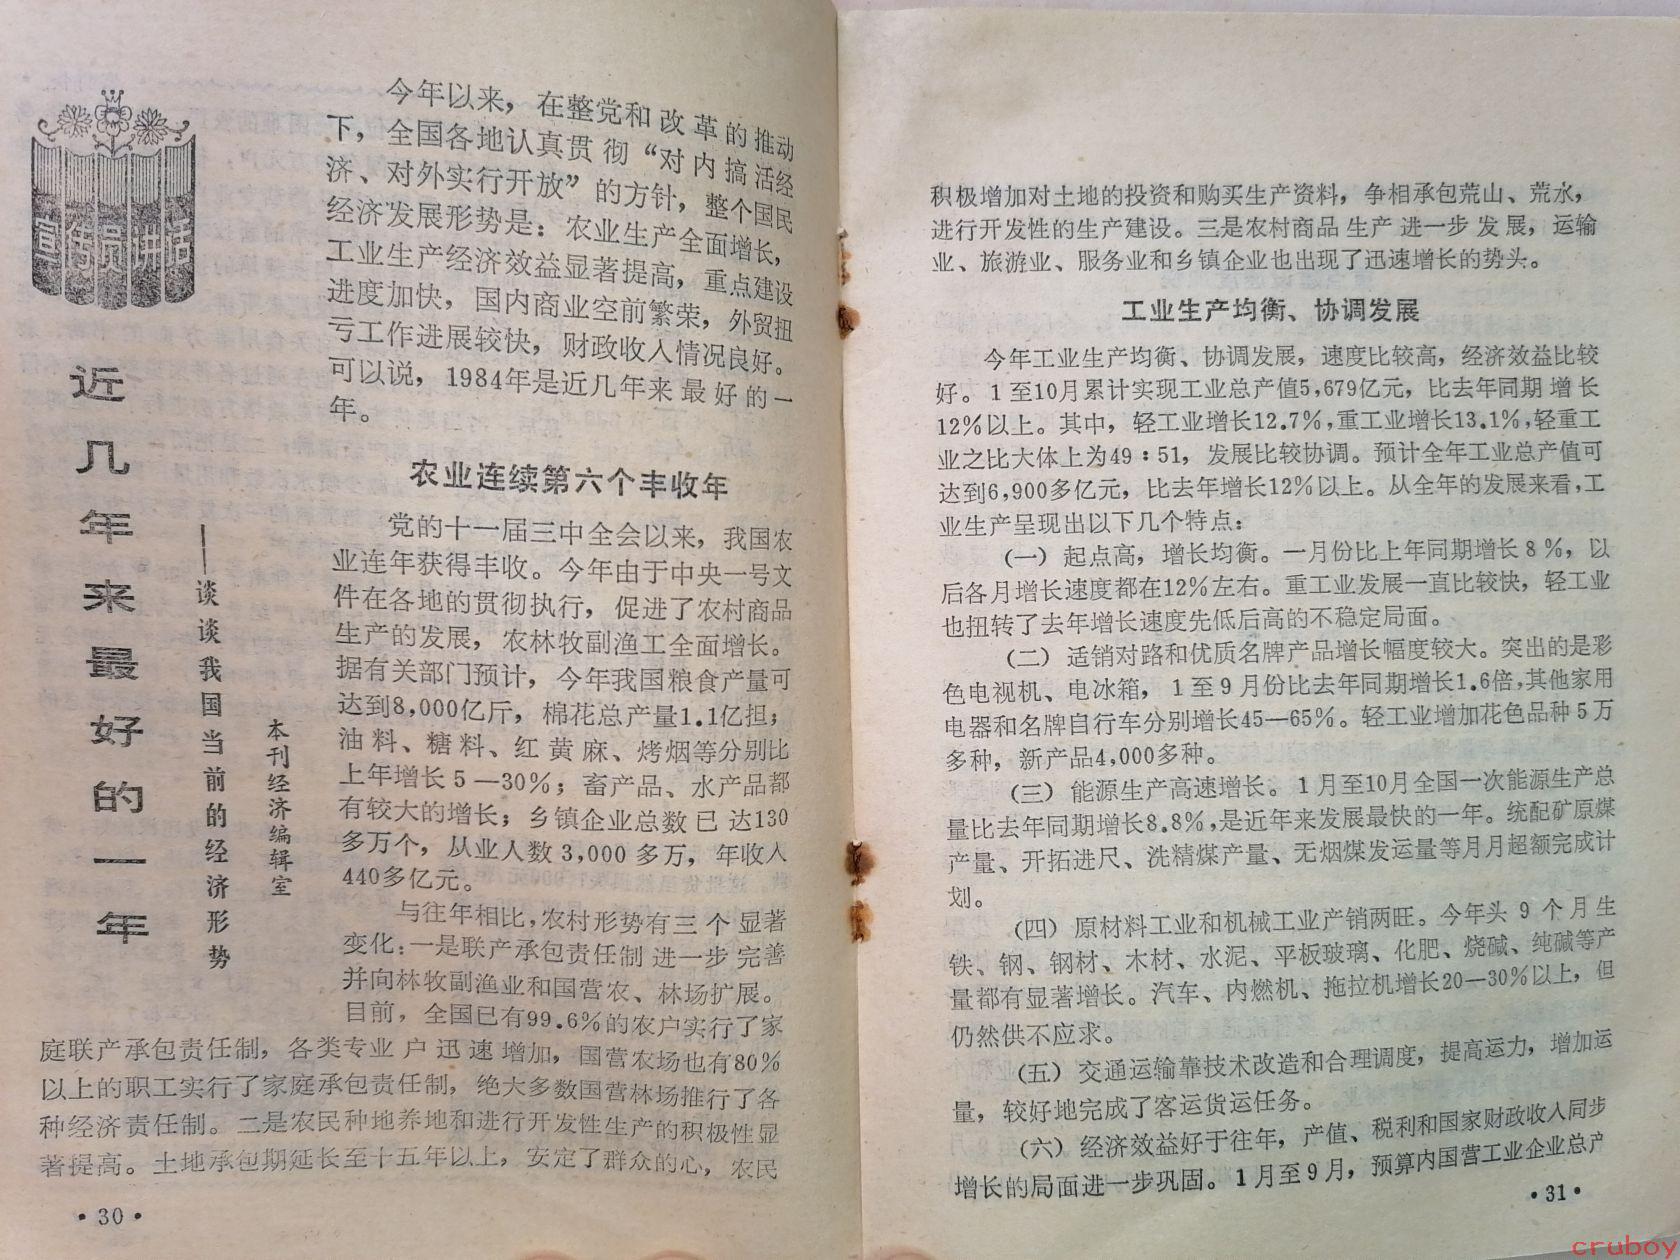 宣传员讲话
近几年来最好的一年
——谈谈我国当前的经济形势
本刊经济编辑室
今年以来，在整党和改革的推动
下，全国各地认真贯彻“对内搞活经
济、对外实行开放”的方针，整个国民
经济发展形势是：农业生产全面增长，
工业生产经济效益显著提高，重点建设
进度加快，国内商业空前繁荣，外贸扭
亏工作进展较快，财政收入情况良好。
可以说，1984年是近几年来最好的一
年。
农业连续第六个丰收年
党的十一届三中全会以来，我国农
业连年获得丰收。今年由于中央一号文
件在各地的贯彻执行，促进了农村商品
生产的发展，农林牧副渔工全面增长。
据有关部门预计，今年我国粮食产量可
达到8,000亿斤，棉花总产量1.1亿担；
油料、糖料、红黄麻、烤烟等分别比
上年增长5—30%；畜产品、水产品都
有较大的增长；乡镇企业总数已达130
多万个，从业人数3,000多万，年收入
440多亿元。
与往年相比，农村形势有三个显著
变化：一是联产承包责任制进一步完善
并向林牧副渔业和国营农、林场扩展。
目前，全国已有99.6%的农户实行了家
庭联产承包责任制，各类专业户迅速增加，国营农场也有80%
以上的职工实行了家庭承包责任制，绝大多数国营林场推行了各
种经济责任制。二是农民种地养地和进行开发性生产的积极性显
著提高。土地承包期延长至十五年以上，安定了群众的心，农民
·30·
积极增加对土地的投资和购买生产资料，争相承包荒山、荒水，
进行开发性的生产建设。三是农村商品生产进一步发展，运输
业、旅游业、服务业和乡镇企业也出现了迅速增长的势头。
工业生产均衡、协调发展
今年工业生产均衡、协调发展，速度比较高，经济效益比较
好。1至10月累计实现工业总产值5,679亿元，比去年同期增长
12%以上。其中，轻工业增长12.7%，重工业增长13.1%，轻重工
业之比大体上为49：51，发展比较协调。预计全年工业总产值可
达到6,900多亿元，比去年增长12%以上。从全年的发展来看，工
业生产呈现出以下几个特点：
（一）起点高，增长均衡。一月份比上年同期增长8%，以
后各月增长速度都在12%左右。重工业发展一直比较快，轻工业
也扭转了去年增长速度先低后高的不稳定局面。
（二）适销对路和优质名牌产品增长幅度较大。突出的是彩
色电视机、电冰箱，1至9月份比去年同期增长1.6倍，其他家用
电器和名牌自行车分别增长45—65%。轻工业增加花色品种5万
多种，新产品4,000多种。
（三）能源生产高速增长。1月至10月全国一次能源生产总
量比去年同期增长8.8%，是近年来发展最快的一年。统配矿原煤
产量、开拓进尺、洗精煤产量、无烟煤发运量等月月超额完成计
划。
（四）原材料工业和机械工业产销两旺。今年头9个月生
铁、钢、钢材、木材、水泥、平板玻璃、化肥、烧碱、纯碱等产
量都有显著增长。汽车、内燃机、拖拉机增长20—30%以上，但
仍然供不应求。
（五）交通运输靠技术改造和合理调度，提高运力，增加运
量，较好地完成了客运货运任务。
（六）经济效益好于往年，产值、税利和国家财政收入同步
增长的局面进一步巩固。1月至9月，预算内国营工业企业总产
·31·
cruboy